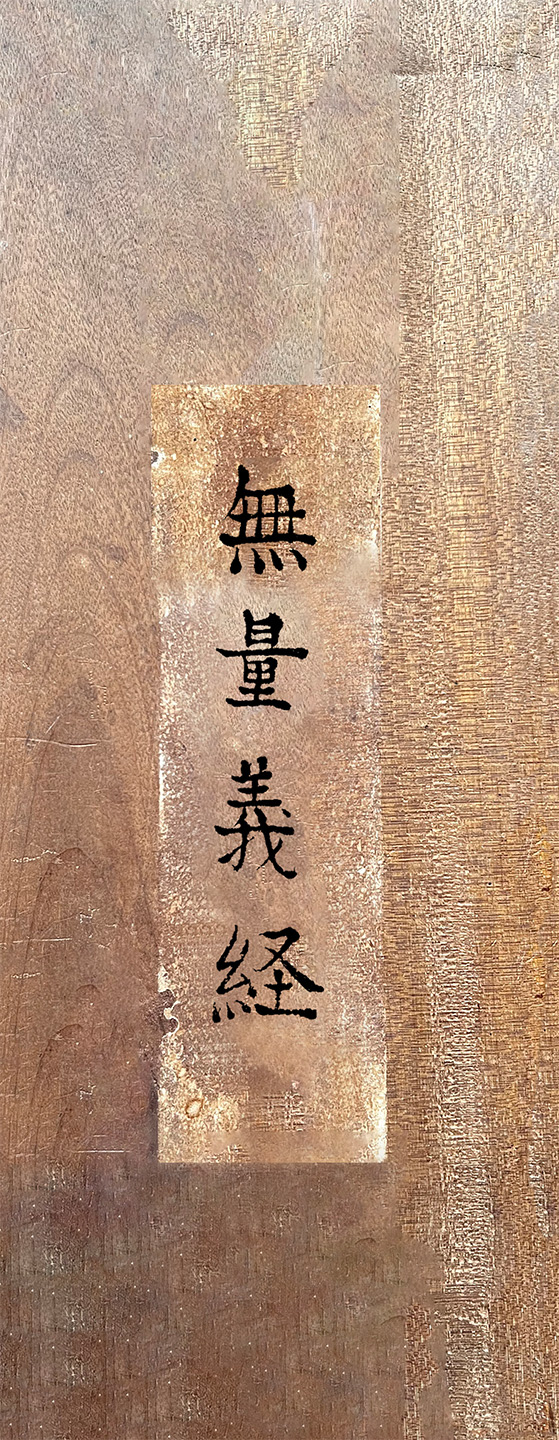 無量義経